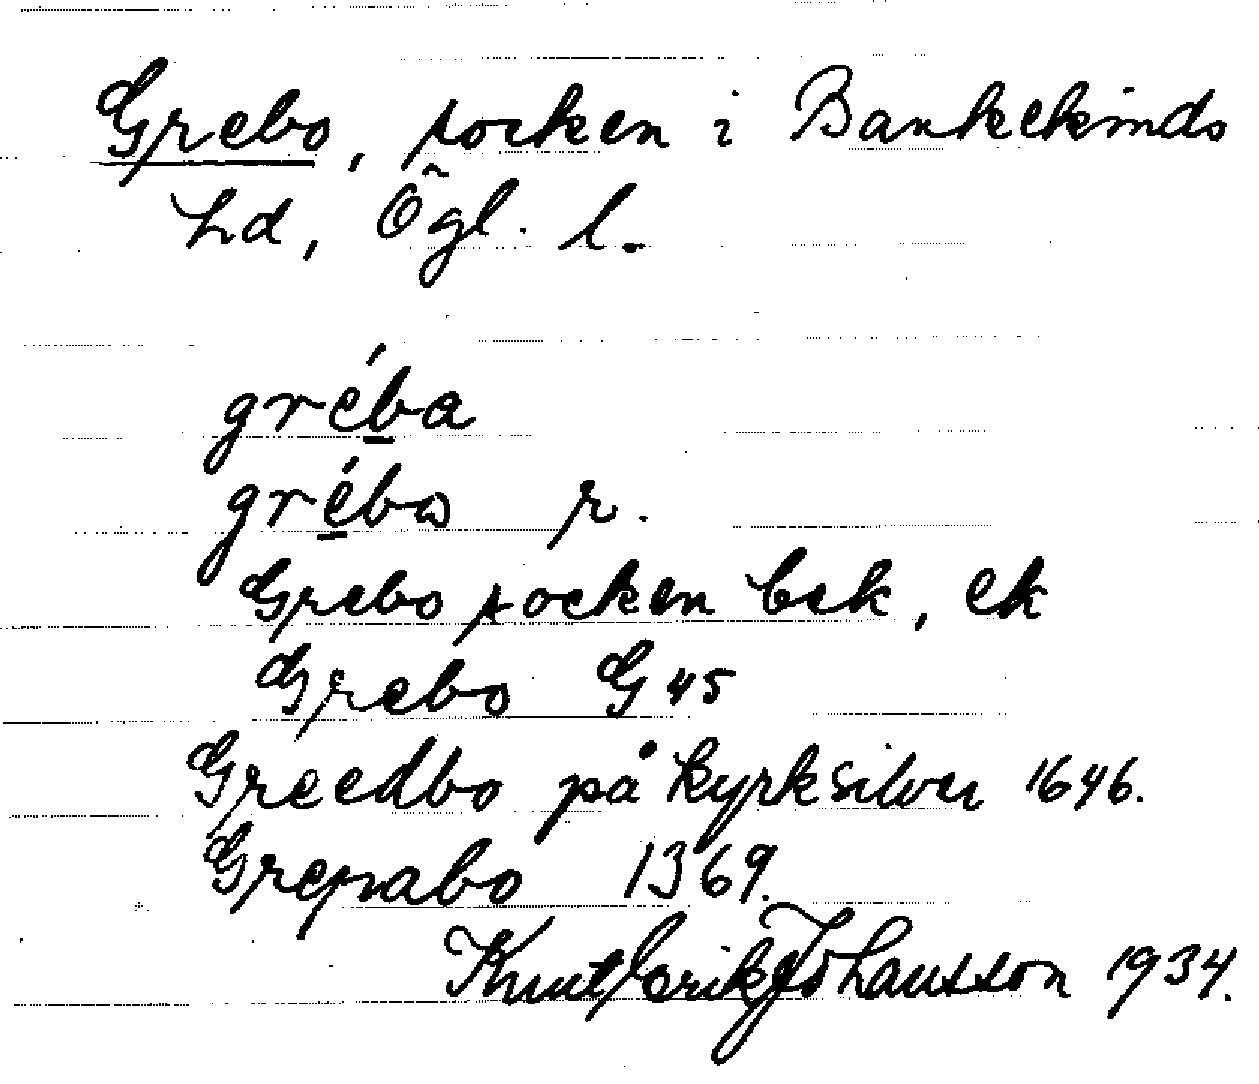 Grebo, socken i Bankekinds
hd, Ögl. l.
gréba
grébo r.
Grebo socken bek, ek
Grebo G 45
Greedbo på kyrksilver 1646.
Grepabo 1369.
Knut Erik Johansson 1934.